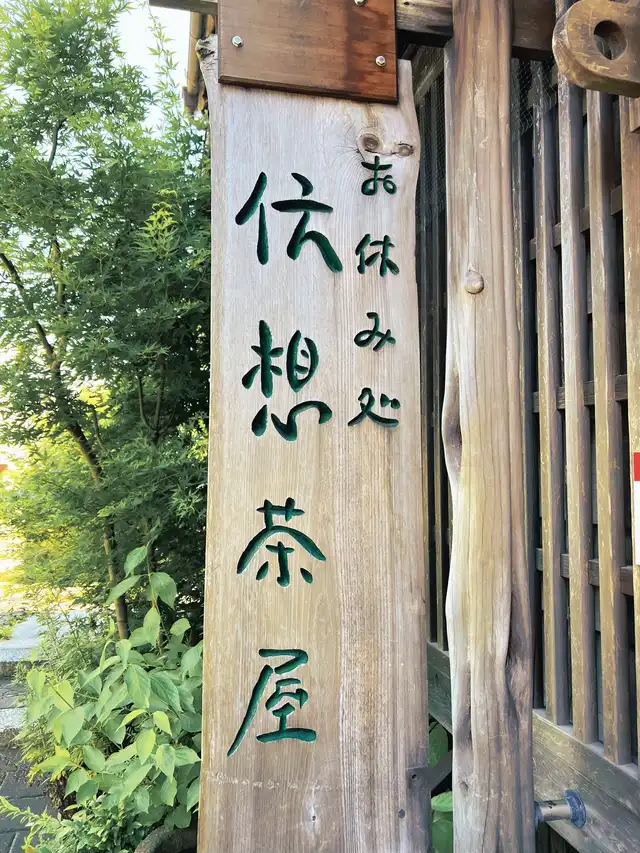 お休み処
伝想茶屋